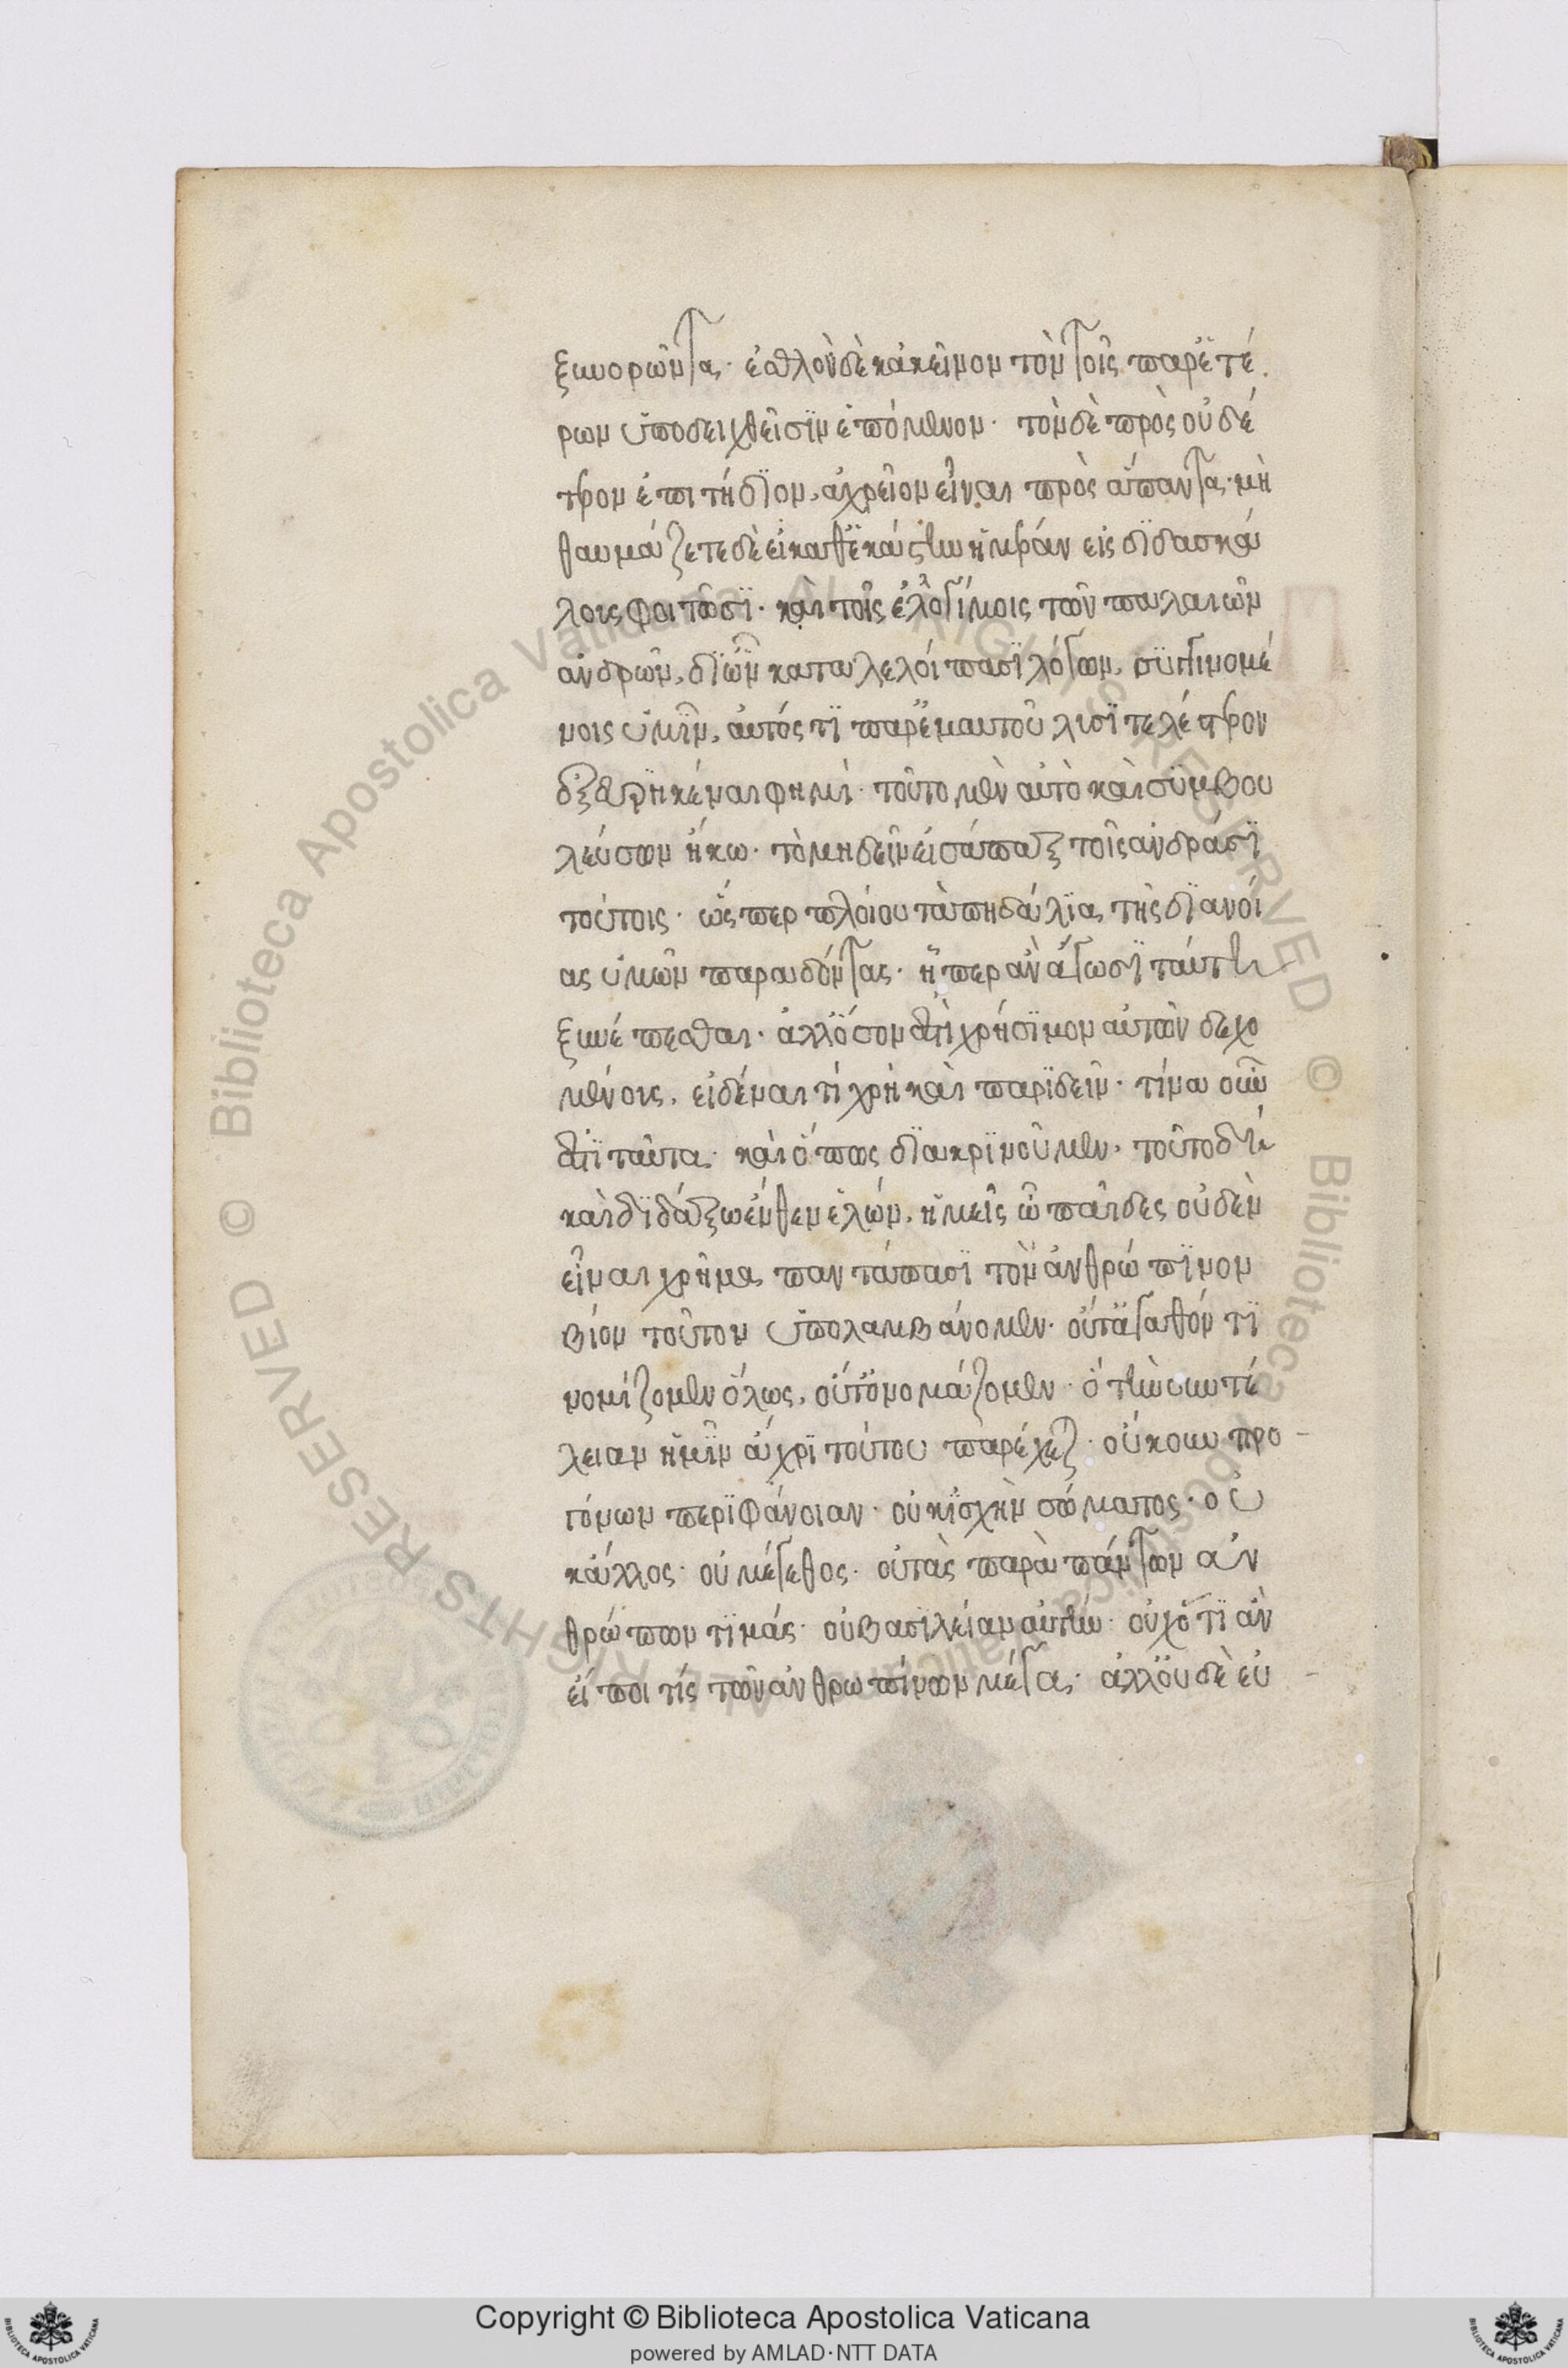 ξυνορῶντα· ἐσθλὸν δὲ κἀκεῖνον τὸν τοῖς παρ' ἑτέ
ρων ὑποδειχθεῖσιν ἑπόμενον· τὸν δὲ πρὸς οὐδέ
τερον ἐπιτήδιον, ἀχρεῖον εἶναι πρὸς ἅπαντα· μὴ
θαυμάζετε δὲ εἰ καθ' ἑκάστην ἡμέραν εἰς διδασκά
λους φοιτῶσι· καὶ τοῖς ἐλλογίμοις τῶν παλαιῶν
ἀνδρῶν, δι' ὧν καταλελοίπασι λόγων, συγγινομέ
νοις ὑμῖν, αὐτός τι παρ' ἐμαυτοῦ λυσιτελέστερον
ἐξευρηκέναι φημί· τοῦτο μὲν αὐτὸ καὶ συμβου
λεύσων ἥκω· τὸ μὴ δεῖν εἰσάπαξ τοῖς ἀνδράσι
τούτοις· ὥσπερ πλοίου τὰ πηδάλια τῆς διανοί
ας ὑμῶν παραδόντας· ᾗπερ ἂν ἄγωσι ταύτη
ξυνέπεσθαι· ἀλλ' ὅσον ἐστὶ χρήσιμον αὐτῶν δεχο
μένους, εἰδέναι τί χρὴ καὶ παριδεῖν· τίνα οὖν
ἐστὶ ταῦτα· καὶ ὅπως διακρινοῦμεν, τοῦτο δὴ
καὶ διδάξω ἔνθεν ἑλών, ἡμεῖς ὦ παῖδες οὐδὲν
εἶναι χρῆμα παντάπασι τὸν ἀνθρώπινον
βίον τοῦτον ὑπολαμβάνομεν· οὔτ' ἀγαθόν τι
νομίζομεν ὅλως, οὔτ' ὀνομάζομεν· ὃ τὴν συντέ
λειαν ἡμῖν ἄχρι τούτου παρέχεται· οὔκουν προ
γόνων περιφάνειαν· οὐκ ἰσχὺν σώματος· οὐ
κάλλος· οὐ μέγεθος· οὐ τὰς παρὰ πάντων ἀν
θρώπων τιμάς· οὐ βασιλείαν αὐτήν· οὐχ ὅτι ἂν
εἴποι τίς τῶν ἀνθρωπίνων μέγα· ἀλλ' οὐδὲ εὐ
Copyright © Biblioteca Apostolica Vaticana
powered by AMLAD·NTT DATA